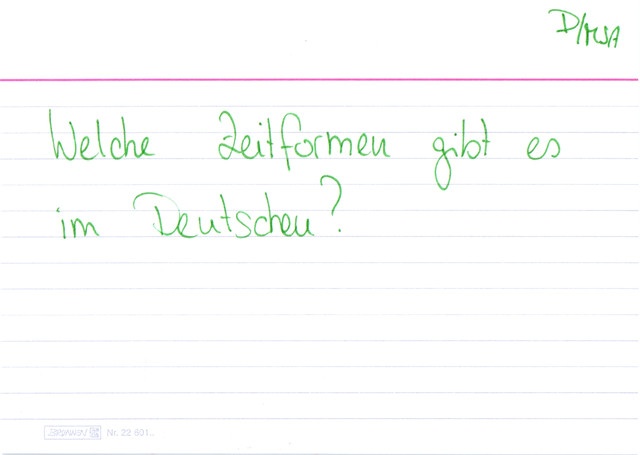 D/MSA
Welche Zeitformen gibt es
im Deutschen?
BRUNNEN Nr. 22 601..